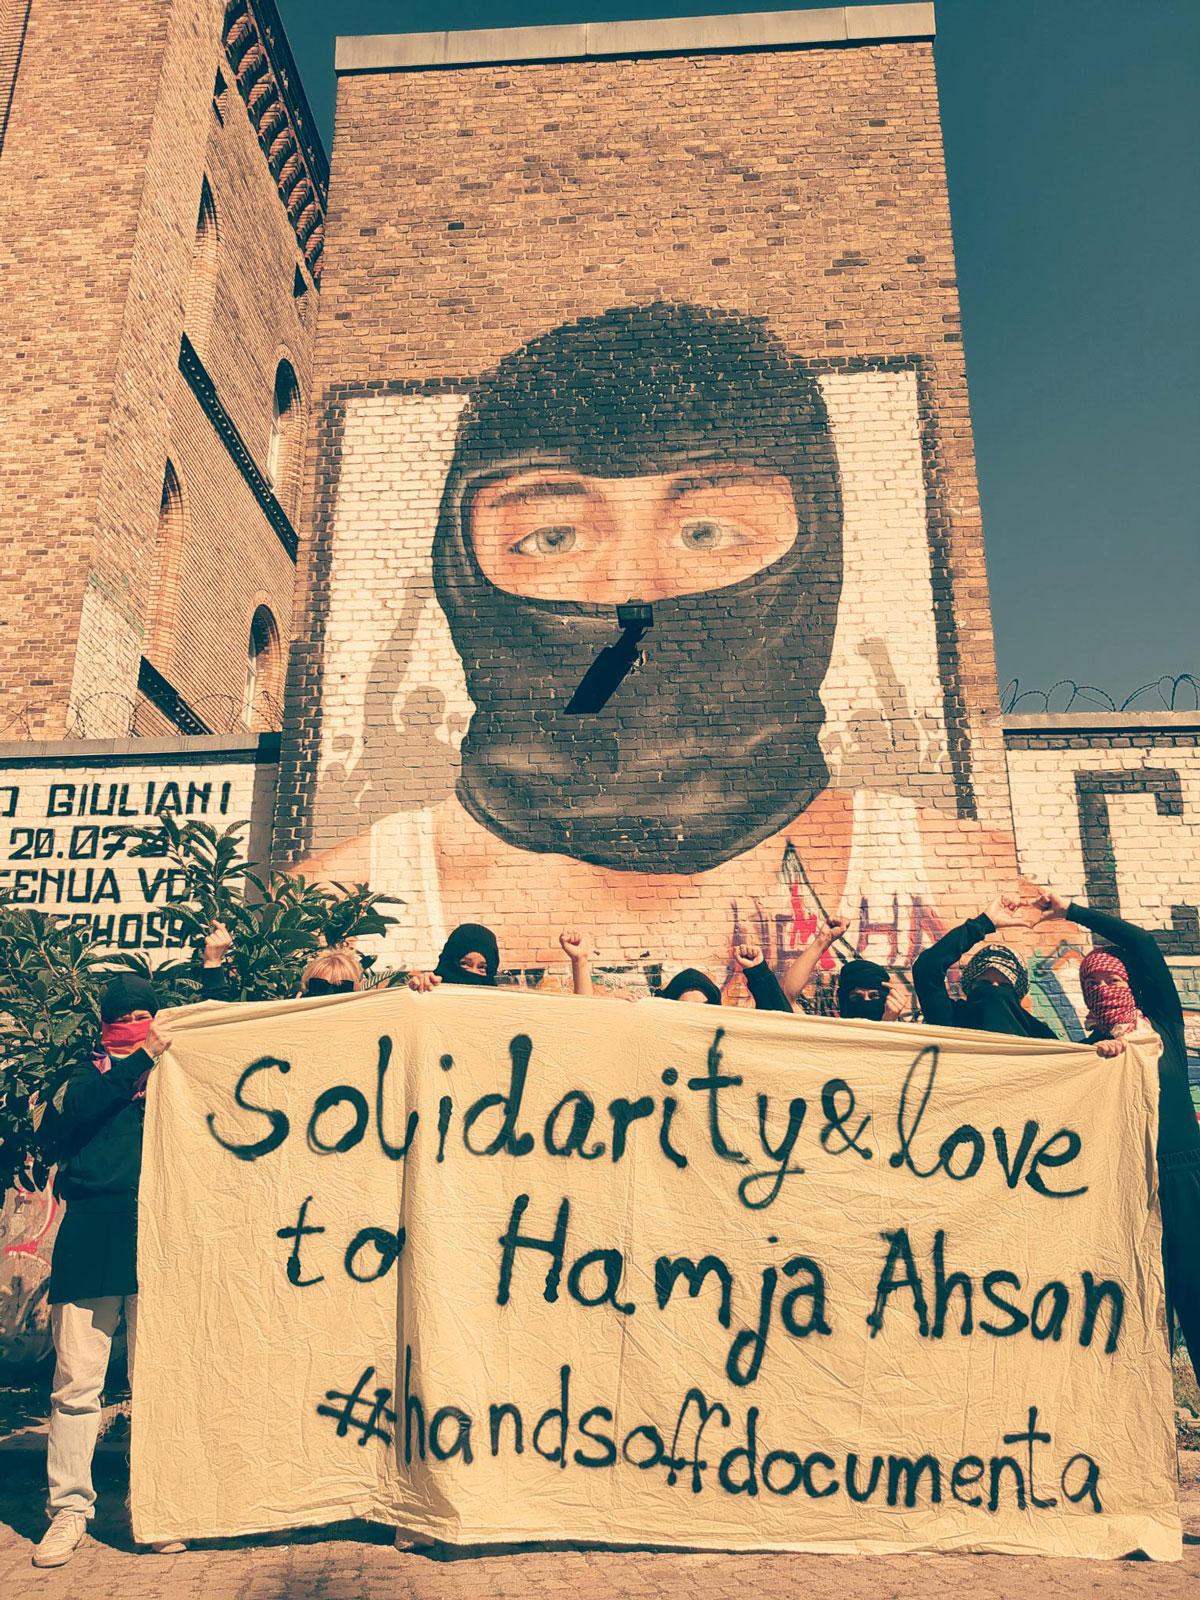 GIULIANI
20.07
GENUA VO
Solidarity & love
to Hamja Ahsan
#handsoffdocumenta